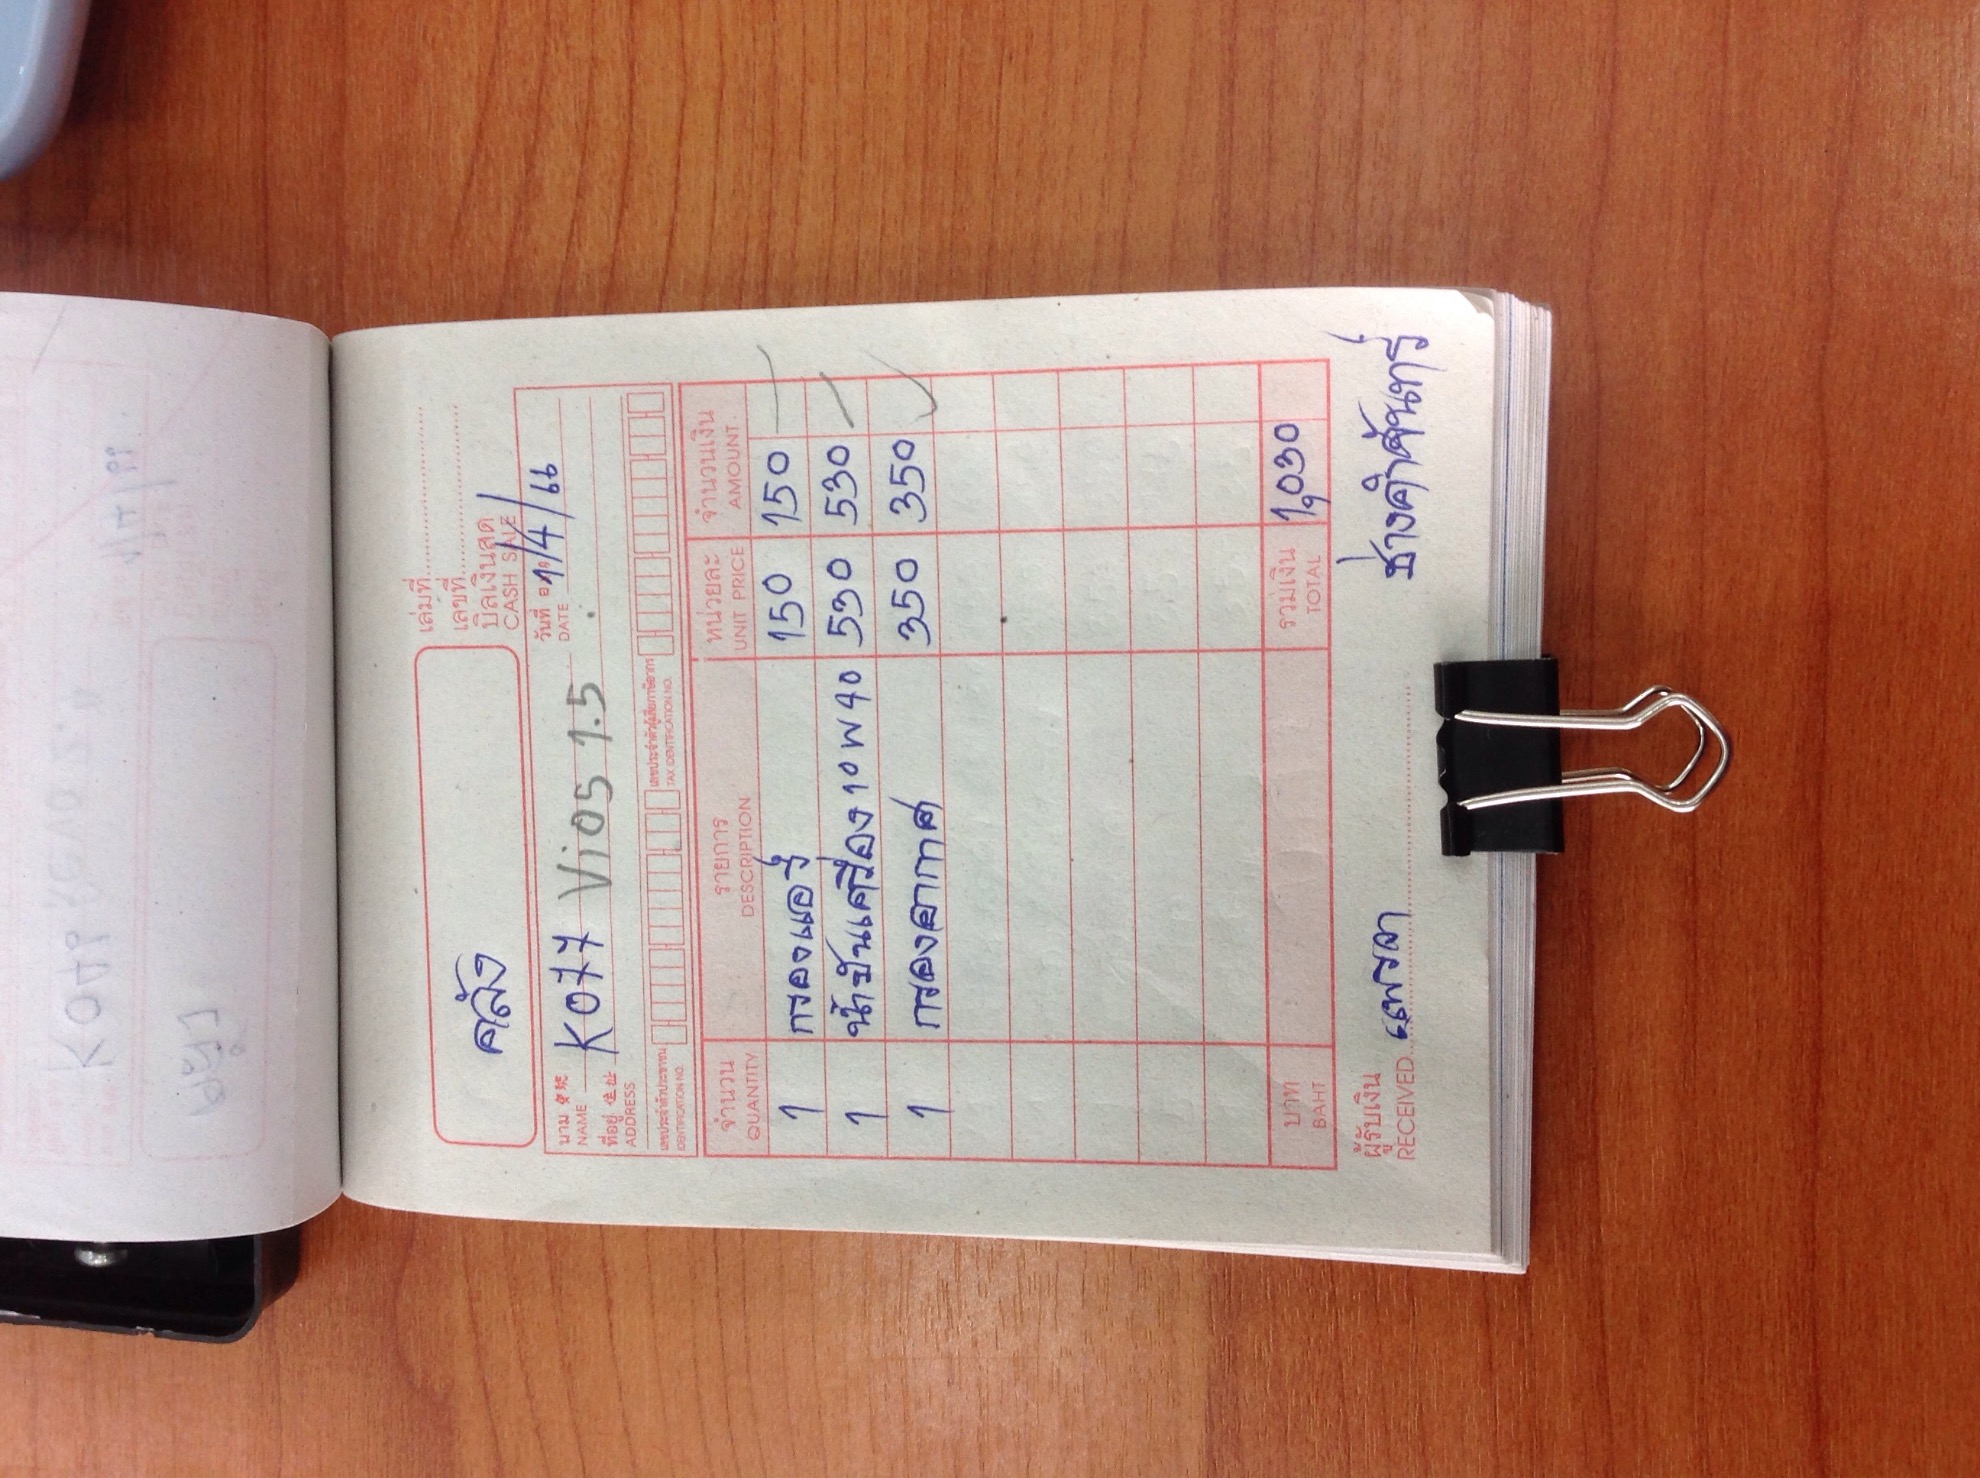 เล่มที่
เลขที่
บิลเงินสด
CASH SALE
คลัง
นาม
NAME
K077 Vios 1.5
วันที่
DATE
/4/66
ที่อยู่ 住址
ADDRESS
เลขประจำตัวประชาชน
IDENTIFICATION NO.
เลขประจำตัวผู้เสียภาษีอากร
TAX IDENTIFICATION NO.
จำนวน รายการ หน่วยละ จำนวนเงิน
QUANTITY DESCRIPTION UNIT PRICE AMOUNT
1 กรองแอร์ 150 150
1 น้ำมันเครื่อง 10W40 530 530
1 กรองอากาศ 350 350
บาท รวมเงิน 1,030
BAHT TOTAL
ผู้รับเงิน
RECEIVED